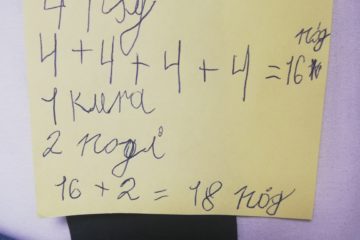 4 psy
nóg
4 + 4 + 4 + 4 = 16
1 kura
2 nogi
16 + 2 = 18 nóg